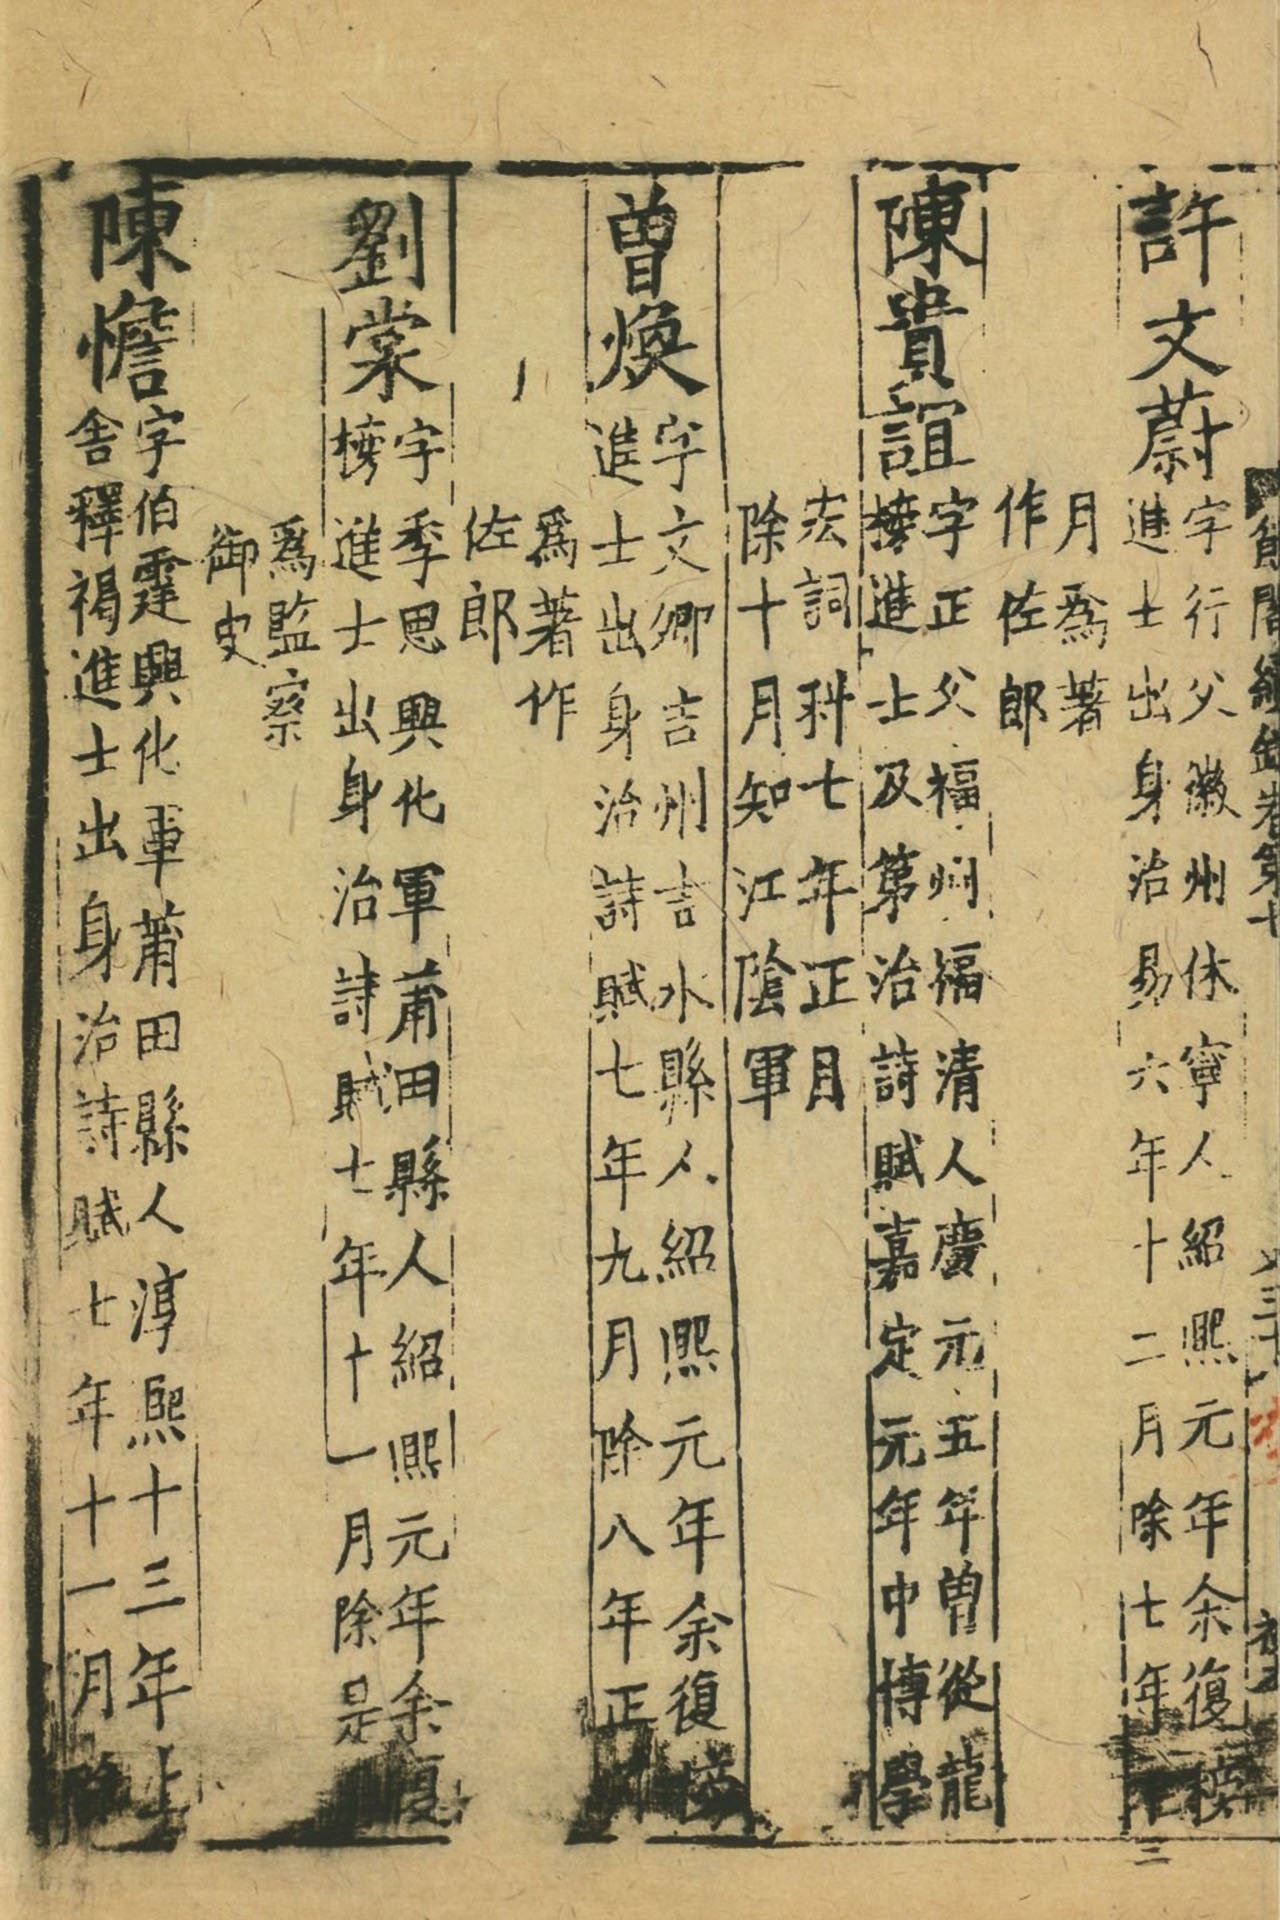 許文蔚字行父徽州休寧人紹熙元年余復榜
進士出身治易六年十二月除七年
月爲著
作佐郎
陳貴誼字正父福州福清人慶元五年曾從龍
榜進士及第治詩賦嘉定元年中博學
宏詞科七年正月
除十月知江陰軍
曾煥字文卿吉州吉水縣人紹熙元年余復榜
進士出身治詩賦七年九月除八年正
爲著作
佐郎
劉棠字季思興化軍莆田縣人紹熙元年余復
榜進士出身治詩賦七年十一月除是
爲監察
御史
陳憺字伯霆興化軍莆田縣人淳熙十三年上
舍釋褐進士出身治詩賦七年十一月除